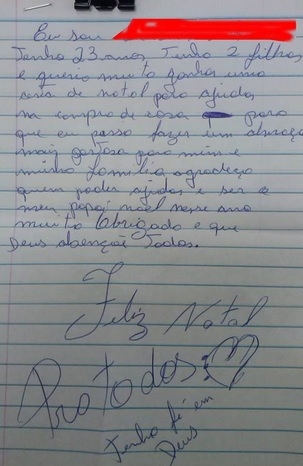 Eu sou
Tenho 23 anos Tenho 2 filhos
e queria muito ganhar uma
cesta de natal para ajudar
na compra de casa para
que eu possa fazer um almoço
mais gostoso para mim e
minha familia agradeço
quem poder ajudar e ser o
meu papai noel nesse ano
muito Obrigado e que
Deus abençoe Todos.
Feliz Natal
Pra todos
Tenho fé em
Deus